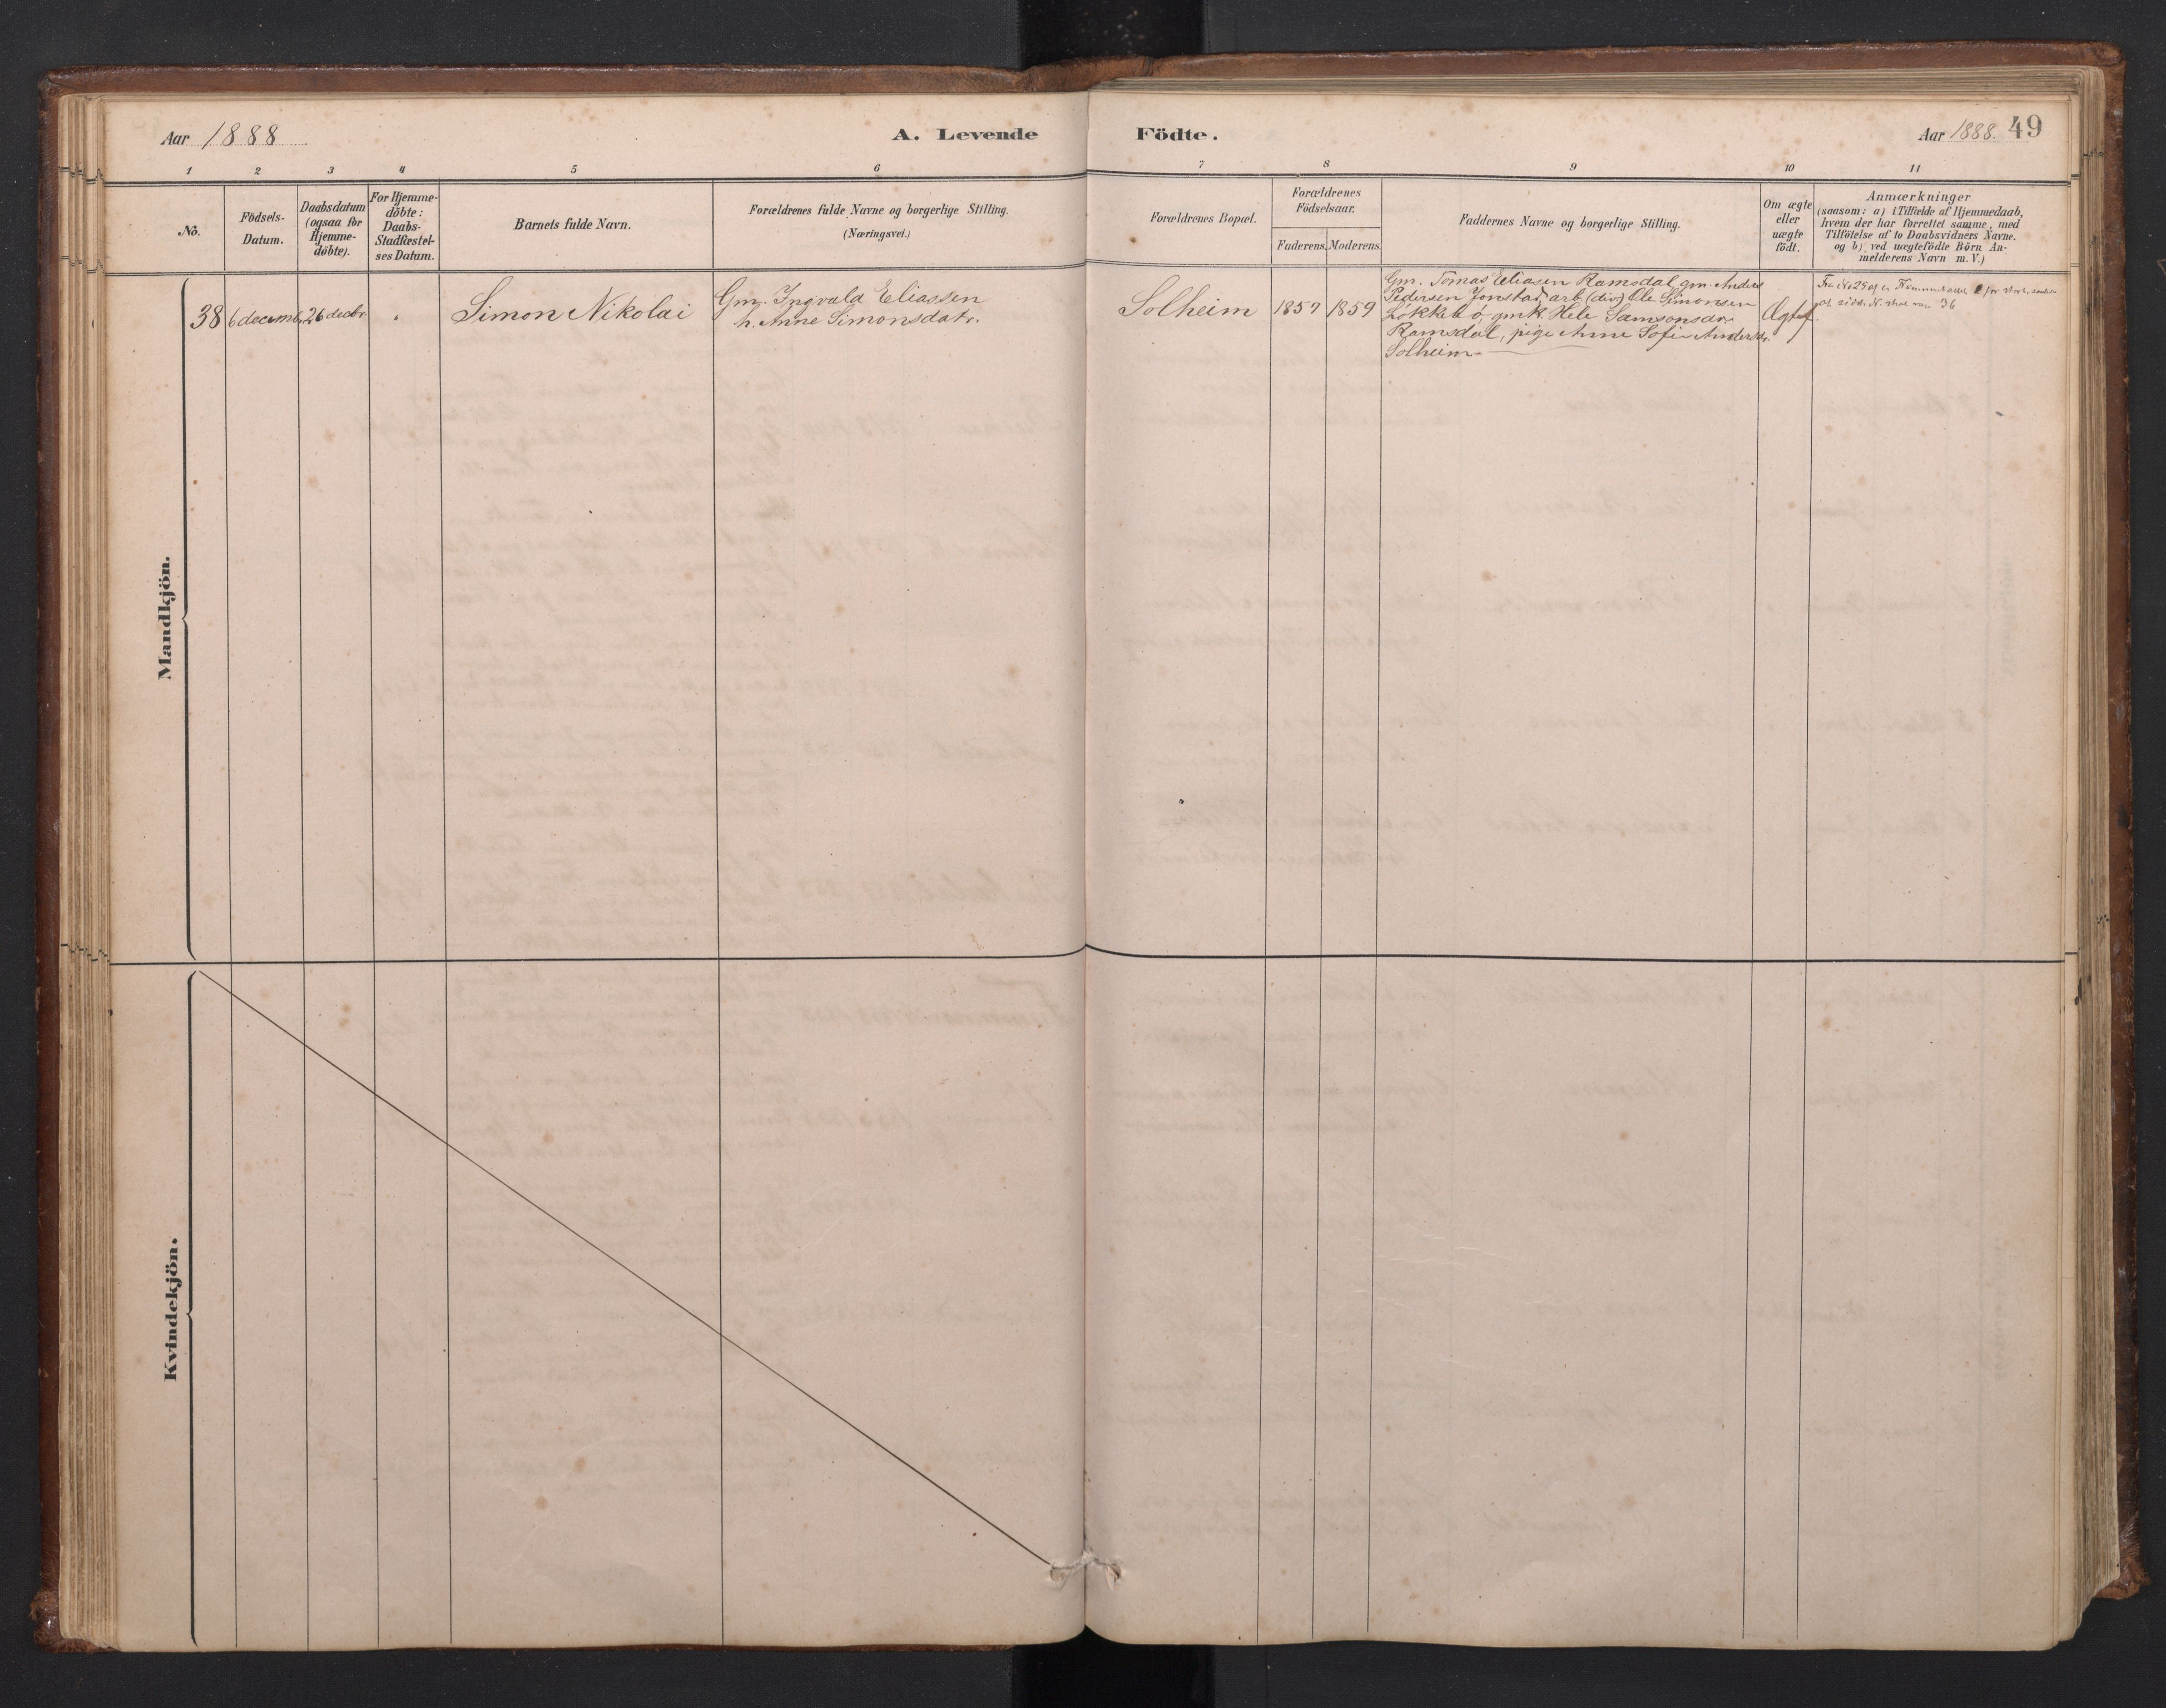 Aar 1888
A. Levende Födte.
Aar 1888. 49
1 2 3 4 5 6 7 8 9 10 11
No.
Födsels-
Datum.
Daabsdatum
(ogsaa for
Hjemme-
döbte).
For Hjemme-
döbte:
Daabs-
Stadfæstel-
ses Datum.
Barnets fulde Navn.
Forældrenes fulde Navne og borgerlige Stilling.
(Næringsvei.)
Forældrenes Bopæl.
Forældrenes
Födselsaar.
Faderens. Moderens.
Faddernes Navne og borgerlige Stilling.
Om ægte
eller
uægte
födt.
Anmærkninger
(saasom: a) i Tilfælde af Hjemmedaab,
hvem der har forrettet samme, med
Tilföielse af to Daabsvidners Navne.
og b) ved uægtefödte Börn An-
melderens Navn m. V.)
Mandkjön.
38
6 decemb.
26 decbr.
Simon Nikolai
Gm. Ingvald Eliassen
h. Anne Simonsdatr.
Solheim
1857
1859
Gm. Tomas Eliasen Ramsdal, gm. Anders
Pedersen Jonstad, arb (div) Ole Simonsen
Løkkebø, gmk. Hele Samsonsdr.
Ramsdal, pige Anne Sofie Andersdr.
Solheim
Ægtef.
Fra No 29 af er
36
Kvindekjön.